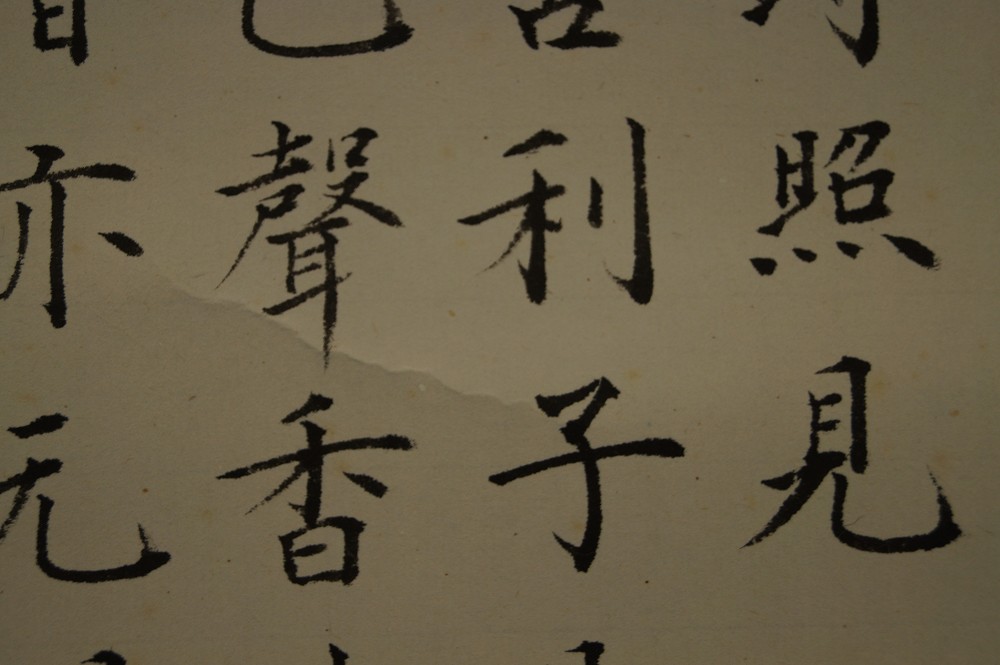 照見
利子
聲香
亦无